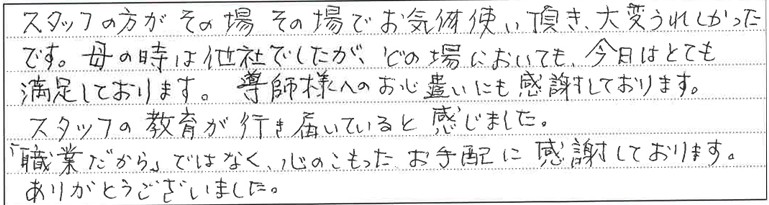 スタッフの方がその場その場でお気体使い頂き、大変うれしかった
です。母の時は他社でしたが、どの場においても、今日はとても
満足しております。導師様へのお心遣いにも感謝しております。
スタッフの教育が行き届いていると感じました。
「職業だから」ではなく、心のこもったお手配に感謝しております。
ありがとうございました。